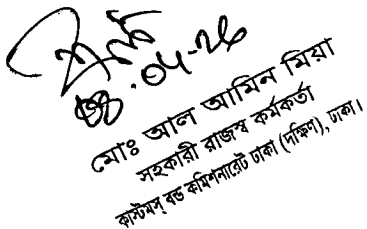 ০৪.০৪-২৬
মোঃ আল আমিন মিয়া
সহকারী রাজস্ব কর্মকর্তা
কাস্টমস্ বন্ড কমিশনারেট ঢাকা (দক্ষিণ), ঢাকা।